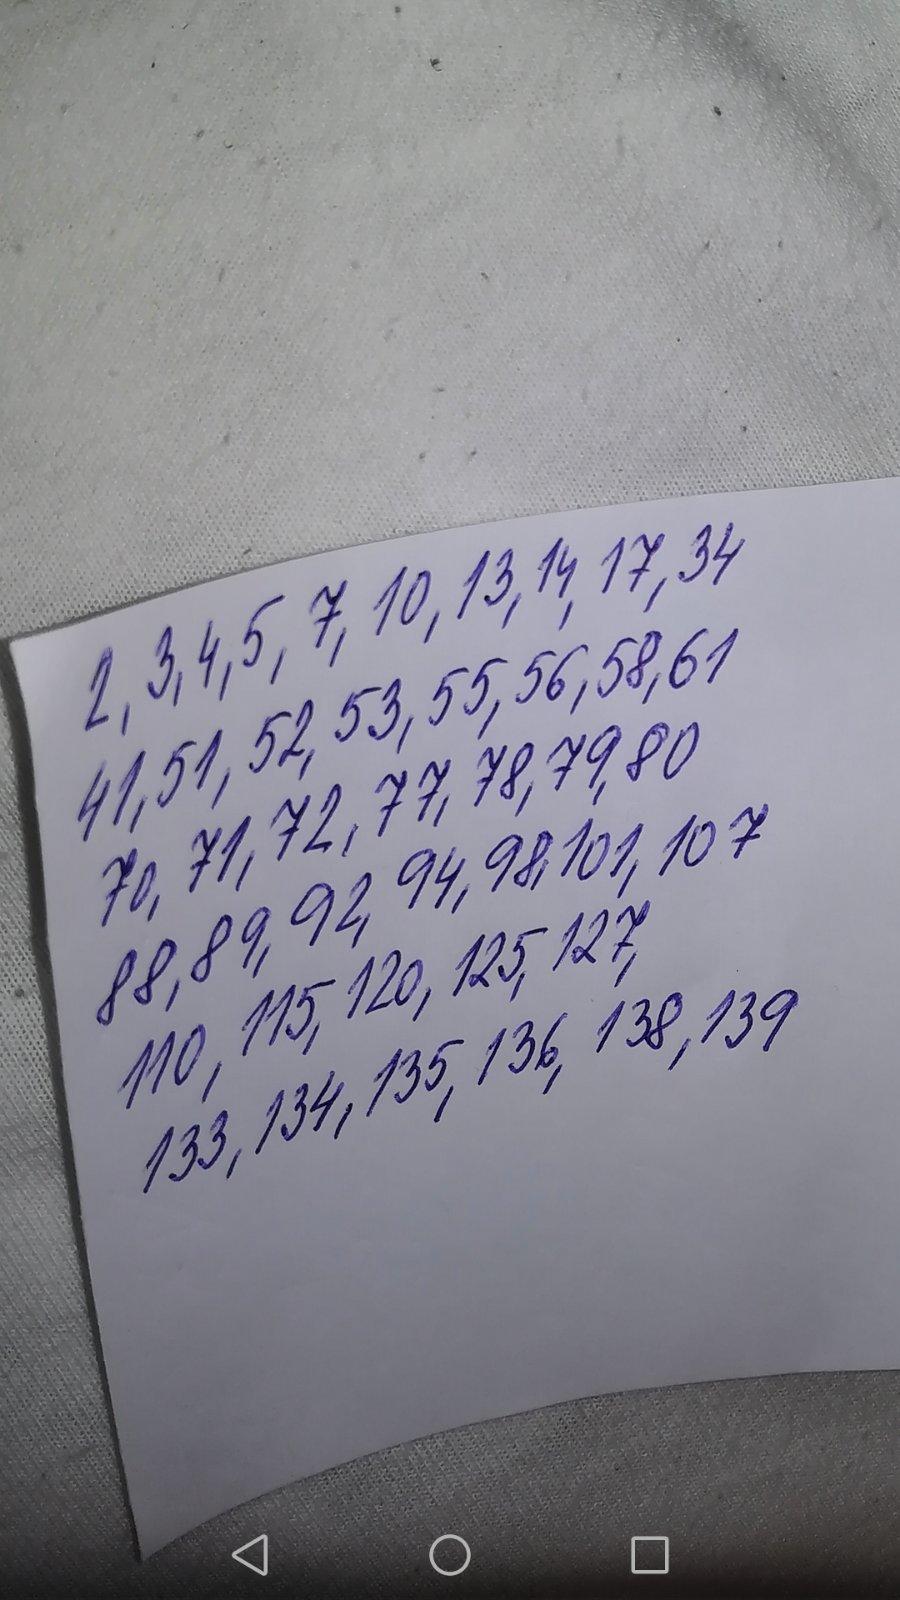 2, 3, 4, 5, 7, 10, 13, 14, 17, 34
41, 51, 52, 53, 55, 56, 58, 61
70, 71, 72, 77, 78, 79, 80
88, 89, 92, 94, 98, 101, 107
110, 115, 120, 125, 127,
133, 134, 135, 136, 138, 139